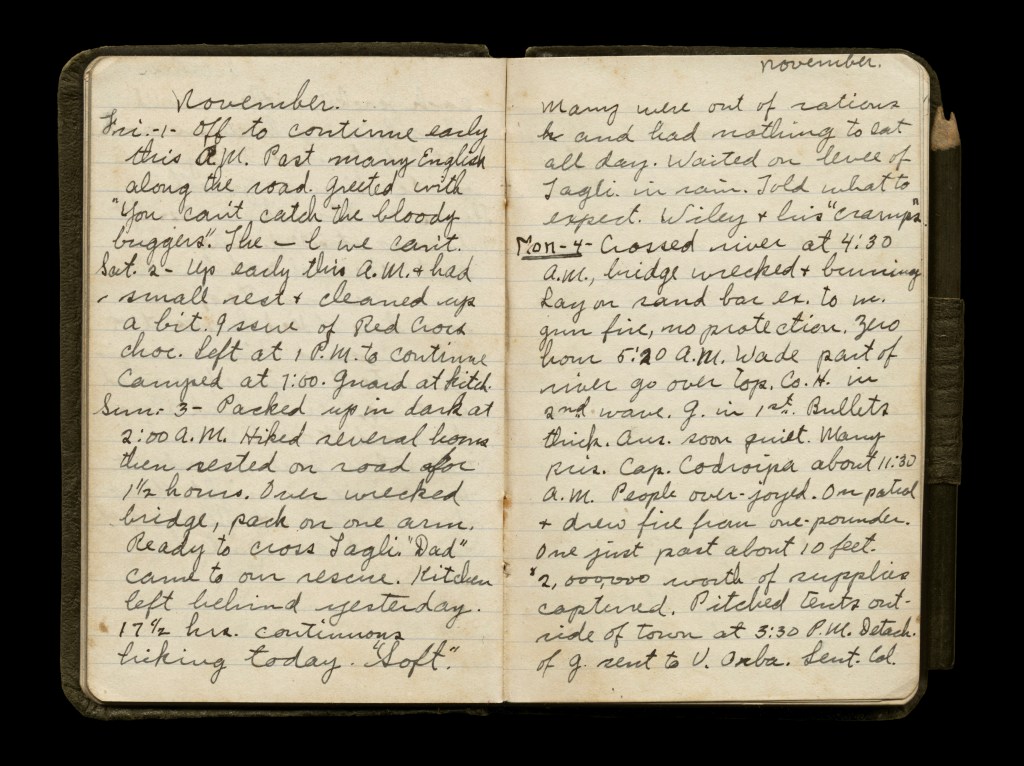 November.
Fri.-1- Off to continue early
this A.M. Past many English
along the road. Greeted with
"You can't catch the bloody
buggers". The — l we can't.
Sat. 2- Up early this A.M. + had
small rest + cleaned up
a bit. Issue of Red Cross
choc. Left at 1 P.M. to continue
Camped at 7:00. Guard at kitch.
Sun. 3- Packed up in dark at
2:00 A.M. Hiked several hours
then rested on road for
1½ hours. Over wrecked
bridge, pack on one arm.
Ready to cross Tagli. "Dad"
came to our rescue. Kitchen
left behind yesterday.
17½ hrs. continuous
hiking today. "Soft".
November.
Many were out of rations
and had nothing to eat
all day. Waited on levee of
Tagli. in rain. Told what to
expect. Wiley + his "cramps".
Mon-4- Crossed river at 4:30
A.M., bridge wrecked + burning
Lay on sand bar ex. to m.
gun fire, no protection. Zero
hour 5:20 A.M. Wade part of
river go over top. Co. H. in
2nd wave. G. in 1st. Bullets
thick. Aus. soon quiet. Many
pris. Cap. Codroipa about 11:30
A.M. People over-joyed. On patrol
+ drew fire from one-pounder.
One just past about 10 feet.
$2,000,000 worth of supplies
captured. Pitched tents out-
side of town at 3:30 P.M. Detach.
of G. sent to V. Orba. Sent. Col.